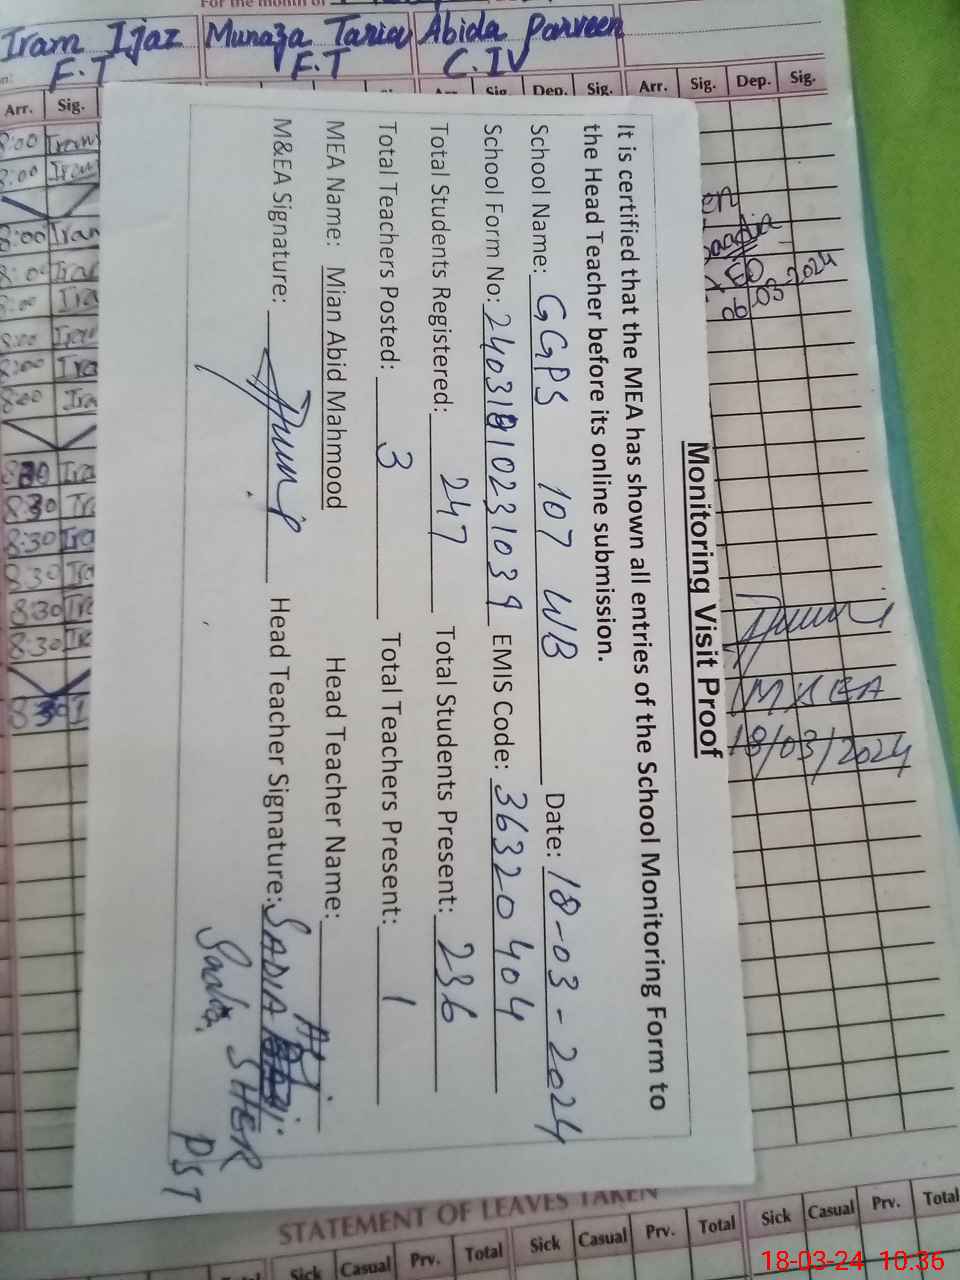 For the month of
Iram Ijaz Munaza Tariq Abida Parveen
F.T F.T C.IV
Arr. Sig. Sig. Dep. Sig. Arr. Sig. Dep. Sig.
8:00 Iram
8:00 Iram
8:00 Iram
8:00 Ira
8:00 Ira
8:00 Iram
8:00 Ira
8:00 Ira
8:30 Ira
8:30 Ir
8:30 Ira
8:30 Ira
8:30 Ira
8:30 Ir
8:30 I
03-2024
M&EA
18/03/2024
Monitoring Visit Proof
It is certified that the MEA has shown all entries of the School Monitoring Form to
the Head Teacher before its online submission.
School Name: GGPS 107 WB Date: 18-03-2024
School Form No: 24031810231039 EMIS Code: 36320404
Total Students Registered: 247 Total Students Present: 236
Total Teachers Posted: 3 Total Teachers Present: 1
MEA Name: Mian Abid Mahmood Head Teacher Name:
M&EA Signature: Head Teacher Signature: SADIA
SHER
Sadia
PST
STATEMENT OF LEAVES TAKEN
Sick Casual Prv. Total Sick Casual Prv. Total Sick Casual Prv. Total
18-03-24 10:36